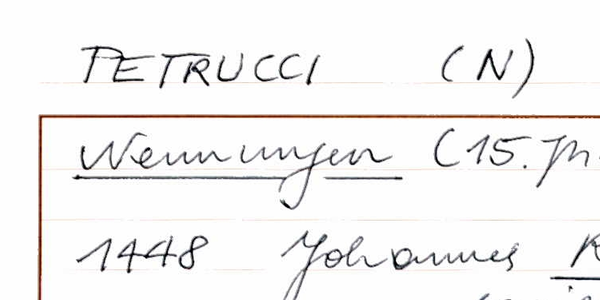 PETRUCCI (N)
Nennungen (15. Jh.
1448 Johannes